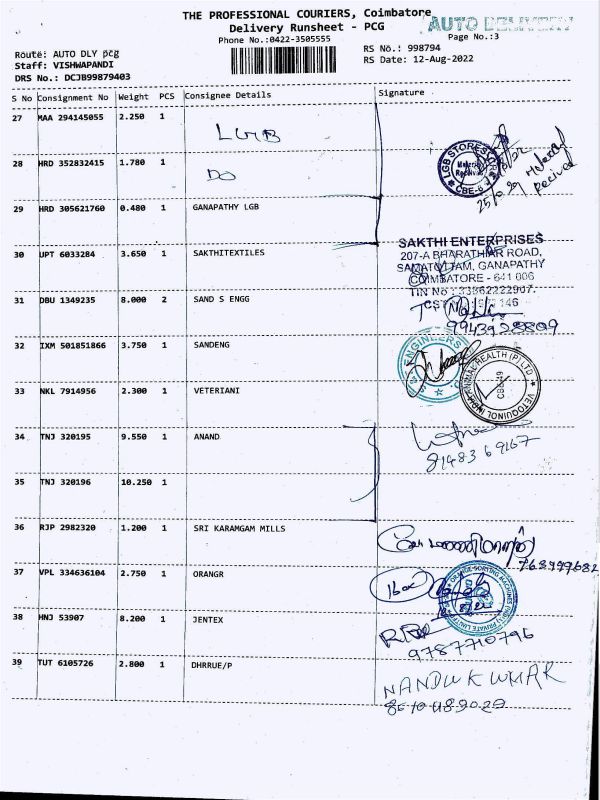 THE PROFESSIONAL COURIERS, Coimbatore
AUTO DELIVERY
Delivery Runsheet - PCG
Page No.:3
Phone No.:0422-3505555
Route: AUTO DLY pcg
RS No.: 998794
Staff: VISHWAPANDI
RS Date: 12-Aug-2022
DRS No.: DCJB99879403
S No Consignment No Weight PCS Consignee Details Signature
27 MAA 294145055 2.250 1 LGB
28 HRD 352832415 1.780 1 DO
LGB STORES
Material Received
CBE-6
29 HRD 305621760 0.480 1 GANAPATHY LGB
30 UPT 6033284 3.650 1 SAKTHITEXTILES
SAKTHI ENTERPRISES
207-A BHARATHIAR ROAD,
GANAPATHY
COIMBATORE - 641 006
31 DBU 1349235 8.000 2 SAND S ENGG
9943928809
32 IXM 501851866 3.750 1 SANDENG
ENGINEERS
33 NKL 7914956 2.300 1 VETERIANI
VETOQUINOL INDIA ANIMAL HEALTH (P) LTD
CBE-49
34 TNJ 320195 9.550 1 ANAND
8148369167
35 TNJ 320196 10.250 1
36 RJP 2982320 1.200 1 SRI KARAMGAM MILLS
37 VPL 334636104 2.750 1 ORANGR
ORANGE SORTING MACHINES (INDIA) PRIVATE LIMITED
38 HNJ 53907 8.200 1 JENTEX
9787710796
39 TUT 6105726 2.800 1 DHRRUE/P
NANDUKUMAR